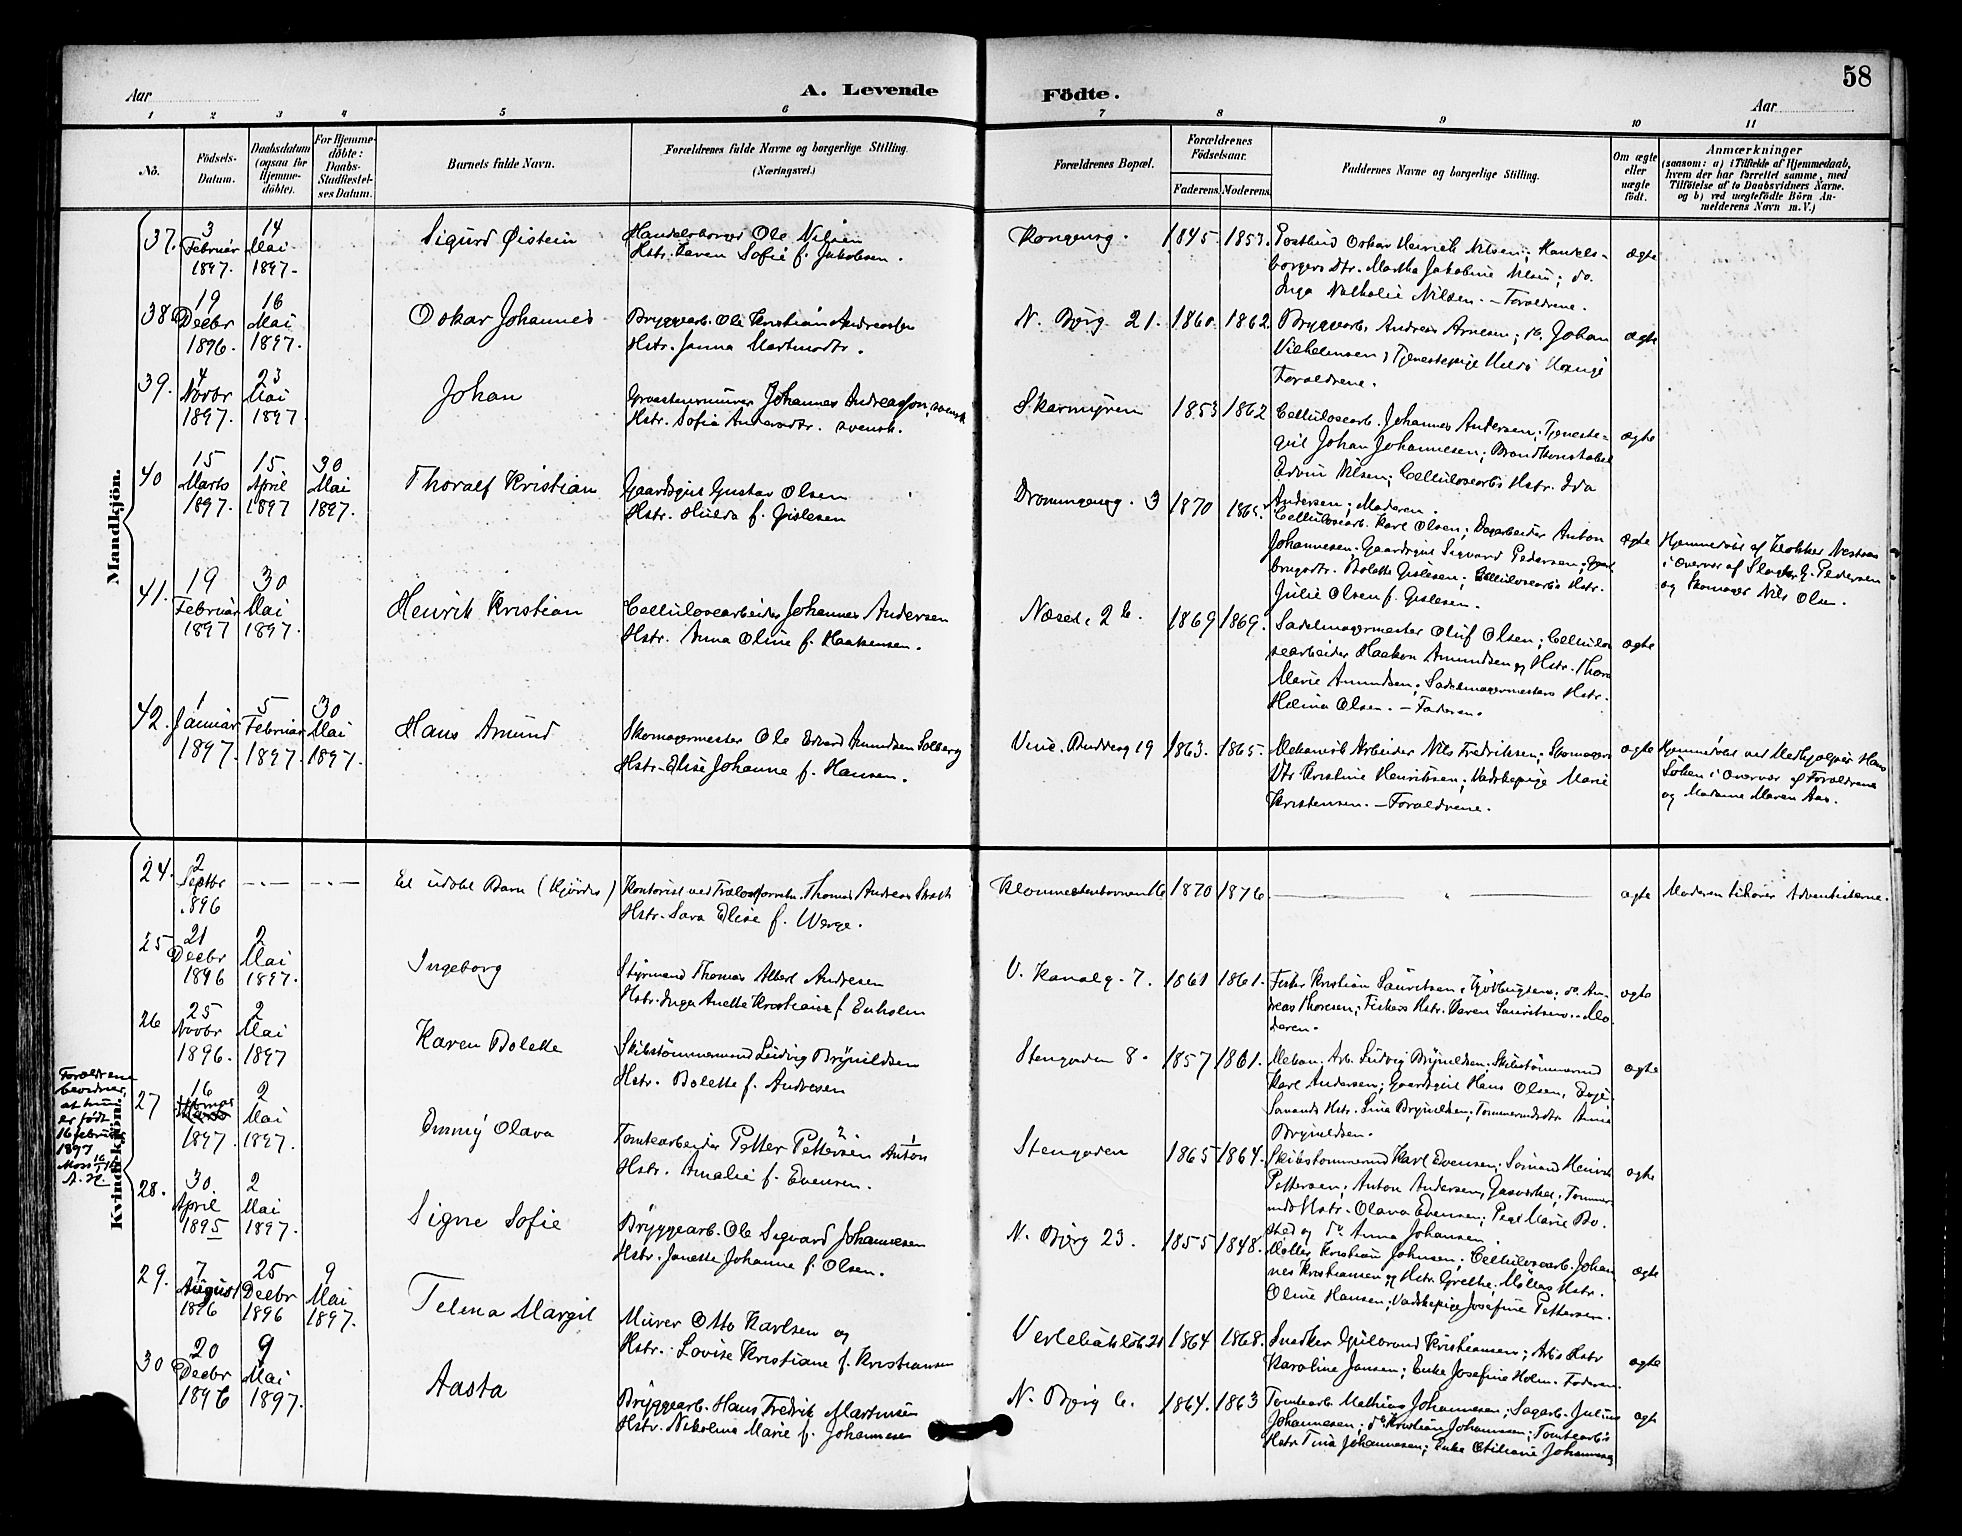 58
Aar
A. Levende
Födte.
Aar
1 2 3 4 5 6 7 8 9 10 11
No.
Födsels-
Datum.
Daabsdatum
(ogsaa for
Hjemme-
döbte).
For Hjemme-
döbte:
Daabs-
Stadfæstel-
ses Datum.
Barnets fulde Navn.
Forældrenes fulde Navne og borgerlige Stilling.
(Næringsvei.)
Forældrenes Bopæl.
Forældrenes
Födselsaar.
Faderens. Moderens.
Faddernes Navne og borgerlige Stilling.
Om ægte
eller
uægte
födt.
Anmærkninger
(saasom: a) i Tilfælde af Hjemmedaab,
hvem der har forrettet samme, med
Tilföielse af to Daabsvidners Navne.
og b) ved uægtefödte Börn An-
melderens Navn m.V.)
Mandkjön.
37. 3 Februar 1897. 14 Mai 1897.
Sigurd Øistein
Ole Nilsen
Hstr. Karen Sofie f. Jakobsen.
Kongensg.
1845. 1853.
Oskar Henrik Nilsen; Handels-
borgers Dtr. Martha Jakobine Nilsen; do.
Inga Nathalie Nilsen. – Forældrene.
ægte
38 19 Decbr 1896. 16 Mai 1897.
Oskar Johannes
Bryggearb. Ole Kristian Andreassen
Hstr. Janna Martinsdtr.
N. Bjerg. 21.
1860. 1862.
Bryggearb. Andreas Arnesen; do. Johan
Vilhelmsen; Tjenestepige Hilda
Forældrene.
ægte
39. 4 Novbr 1897. 23 Mai 1897
Johan
Johannes Andreasson, svensk
Hstr. Sofia Andersdtr. svensk.
Skarmyren
1853 1862
Cellulosearb. Johannes Andersen; Tjeneste-
gut Johan Johannesen; Brandkonstabel
Edvin Nilsen; Cellulosearb's Hstr. Ida
Andersen; Moderen.
ægte
40 15 Marts 1897. 15 April 1897 30 Mai 1897.
Thoralf Kristian
Gaardsgut Gustav Olsen
Hstr. Hulda f. Gislesen
Dronningensg. 3
1870 1865.
Cellulosearb. Karl Olsen; Dagarbeider Anton
Johannesen; Gaardsgut Sigvard Pedersen;
brugerdtr. Bolette Gislesen; Cellulosearb's Hstr.
Julie Olsen f. Gislesen.
ægte
Hjemmedöbt af Klokker
i Overvær af G. Pedersen
og Skomager Nils Olsen.
41. 19 Februar 1897 30 Mai 1897.
Henrik Kristian
Cellulosearbeider Johannes Andersen
Hstr. Anna Oline f. Haakensen.
Næsed. 26.
1869 1869.
Sadelmagermester Oluf Olsen; Cellulo
searbeider Haakon Amundsen og Hstr. Thora
Marie Amundsen; Sadelmagermesters Hstr.
Helina Olsen. – Faderen.
ægte
42. 1 Januar 1897. 5 Februar 1897. 30 Mai 1897.
Hans Amund
Skomagermester Ole Edvard Amundsen Solberg
Hstr. Elise Johanne f. Hansen.
19
1863. 1865.
Mekanisk Arbeider Nils Fredriksen; Skomagers
Dtr. Kristine Henriksen; Vadskepige Marie
Kristensen. – Forældrene.
ægte
Hjemmedöbt ved Medhjælper Hans
i Overvær af Forældrene
og Madame Maren Aas.
Kvindekjön.
24. 2 Septbr 1896 -..- -..-
Et udöbt Barn (Kjördis)
Kontorist ved Thomas Andreas
Hstr. Sara Elise f. Werge.
16
1870 1876.
ægte
Moderen tilhører Adventisterne.
25 21 Decbr 1896 2 Mai 1897.
Ingeborg
Styrmand Thomas Albert Andresen
Hstr. Inga Anette Kristiane f. Enholm
V. Kanalg. 7.
1861 1861.
Fisker Kristian Lauritsen, do. An-
dreas Thoresen; Fiskers Hstr. Karen Lauritsen. – Mo-
deren.
ægte
26 25 Novbr 1896. 2 Mai 1897
Karen Bolette
Skibstömmermand Ludvig Brynildsen
Hstr. Bolette f. Andresen
Stengaden 8.
1857 1861.
Mekan. Arb. Ludvig Brynildsen; Skibstömmermand
Karl Andersen; Gaardsgut Hans Olsen,
Hstr. Lina Brynildsen; Tömmermandsdtr. Anna
Brynildsen.
ægte
Forældrene
bevidner,
at hun
er født
16 februar
1897
Moss
A. H.
27 16 1897. 2 Mai 1897.
Emmy Olava
Tomtearbeider Petter Pettersen Anton
Hstr. Amalie f. Evensen.
Stengaden
1865 1864.
Skibstömmermd Karl Evensen; Sömand Henrik
Pettersen; Anton Andersen, Gasværket; Tömmer-
mds Hstr. Olava Evensen; Pige Marie Bo-
sted og do. Anna Johansen.
ægte
28. 30 April 1895 2 Mai 1897.
Signe Sofie
Bryggearb. Ole Sigvard Johannesen
Hstr. Janette Johanne f. Olsen.
N. Bjerg 23.
1855 1848.
Möller Kristian Johnsen; Cellulosearb. Johan
nes Kristiansen og Hstr. Grethe; Möllers Hstr.
Oline Hansen; Vadskepige Josefine Pettersen.
ægte
29. 7 August 1896 25 Decbr 1896 9 Mai 1897.
Telma Margit
Murer Otto Karlsen og
Hstr. Lovise Kristiane f. Kristiansen
1864 1868.
Snedker Gulbrand Kristiansen; Arb's Hstr
Karoline Jansen; Enke Josefine Holm. Faderen.
ægte
30 20 Decbr 1896 9 Mai 1897.
Aasta
Bryggearb. Hans Fredrik Martinsen
Hstr. Nikoline Marie f. Johannesen
N. Bjerg 6.
1864. 1863
Tomtearb. Mathias Johannesen; Sagarb. Julius
Johannesen; do Kristian Johannesen; Tomtearb's
Hstr. Tina Johannesen; Enke Johannesen
ægte